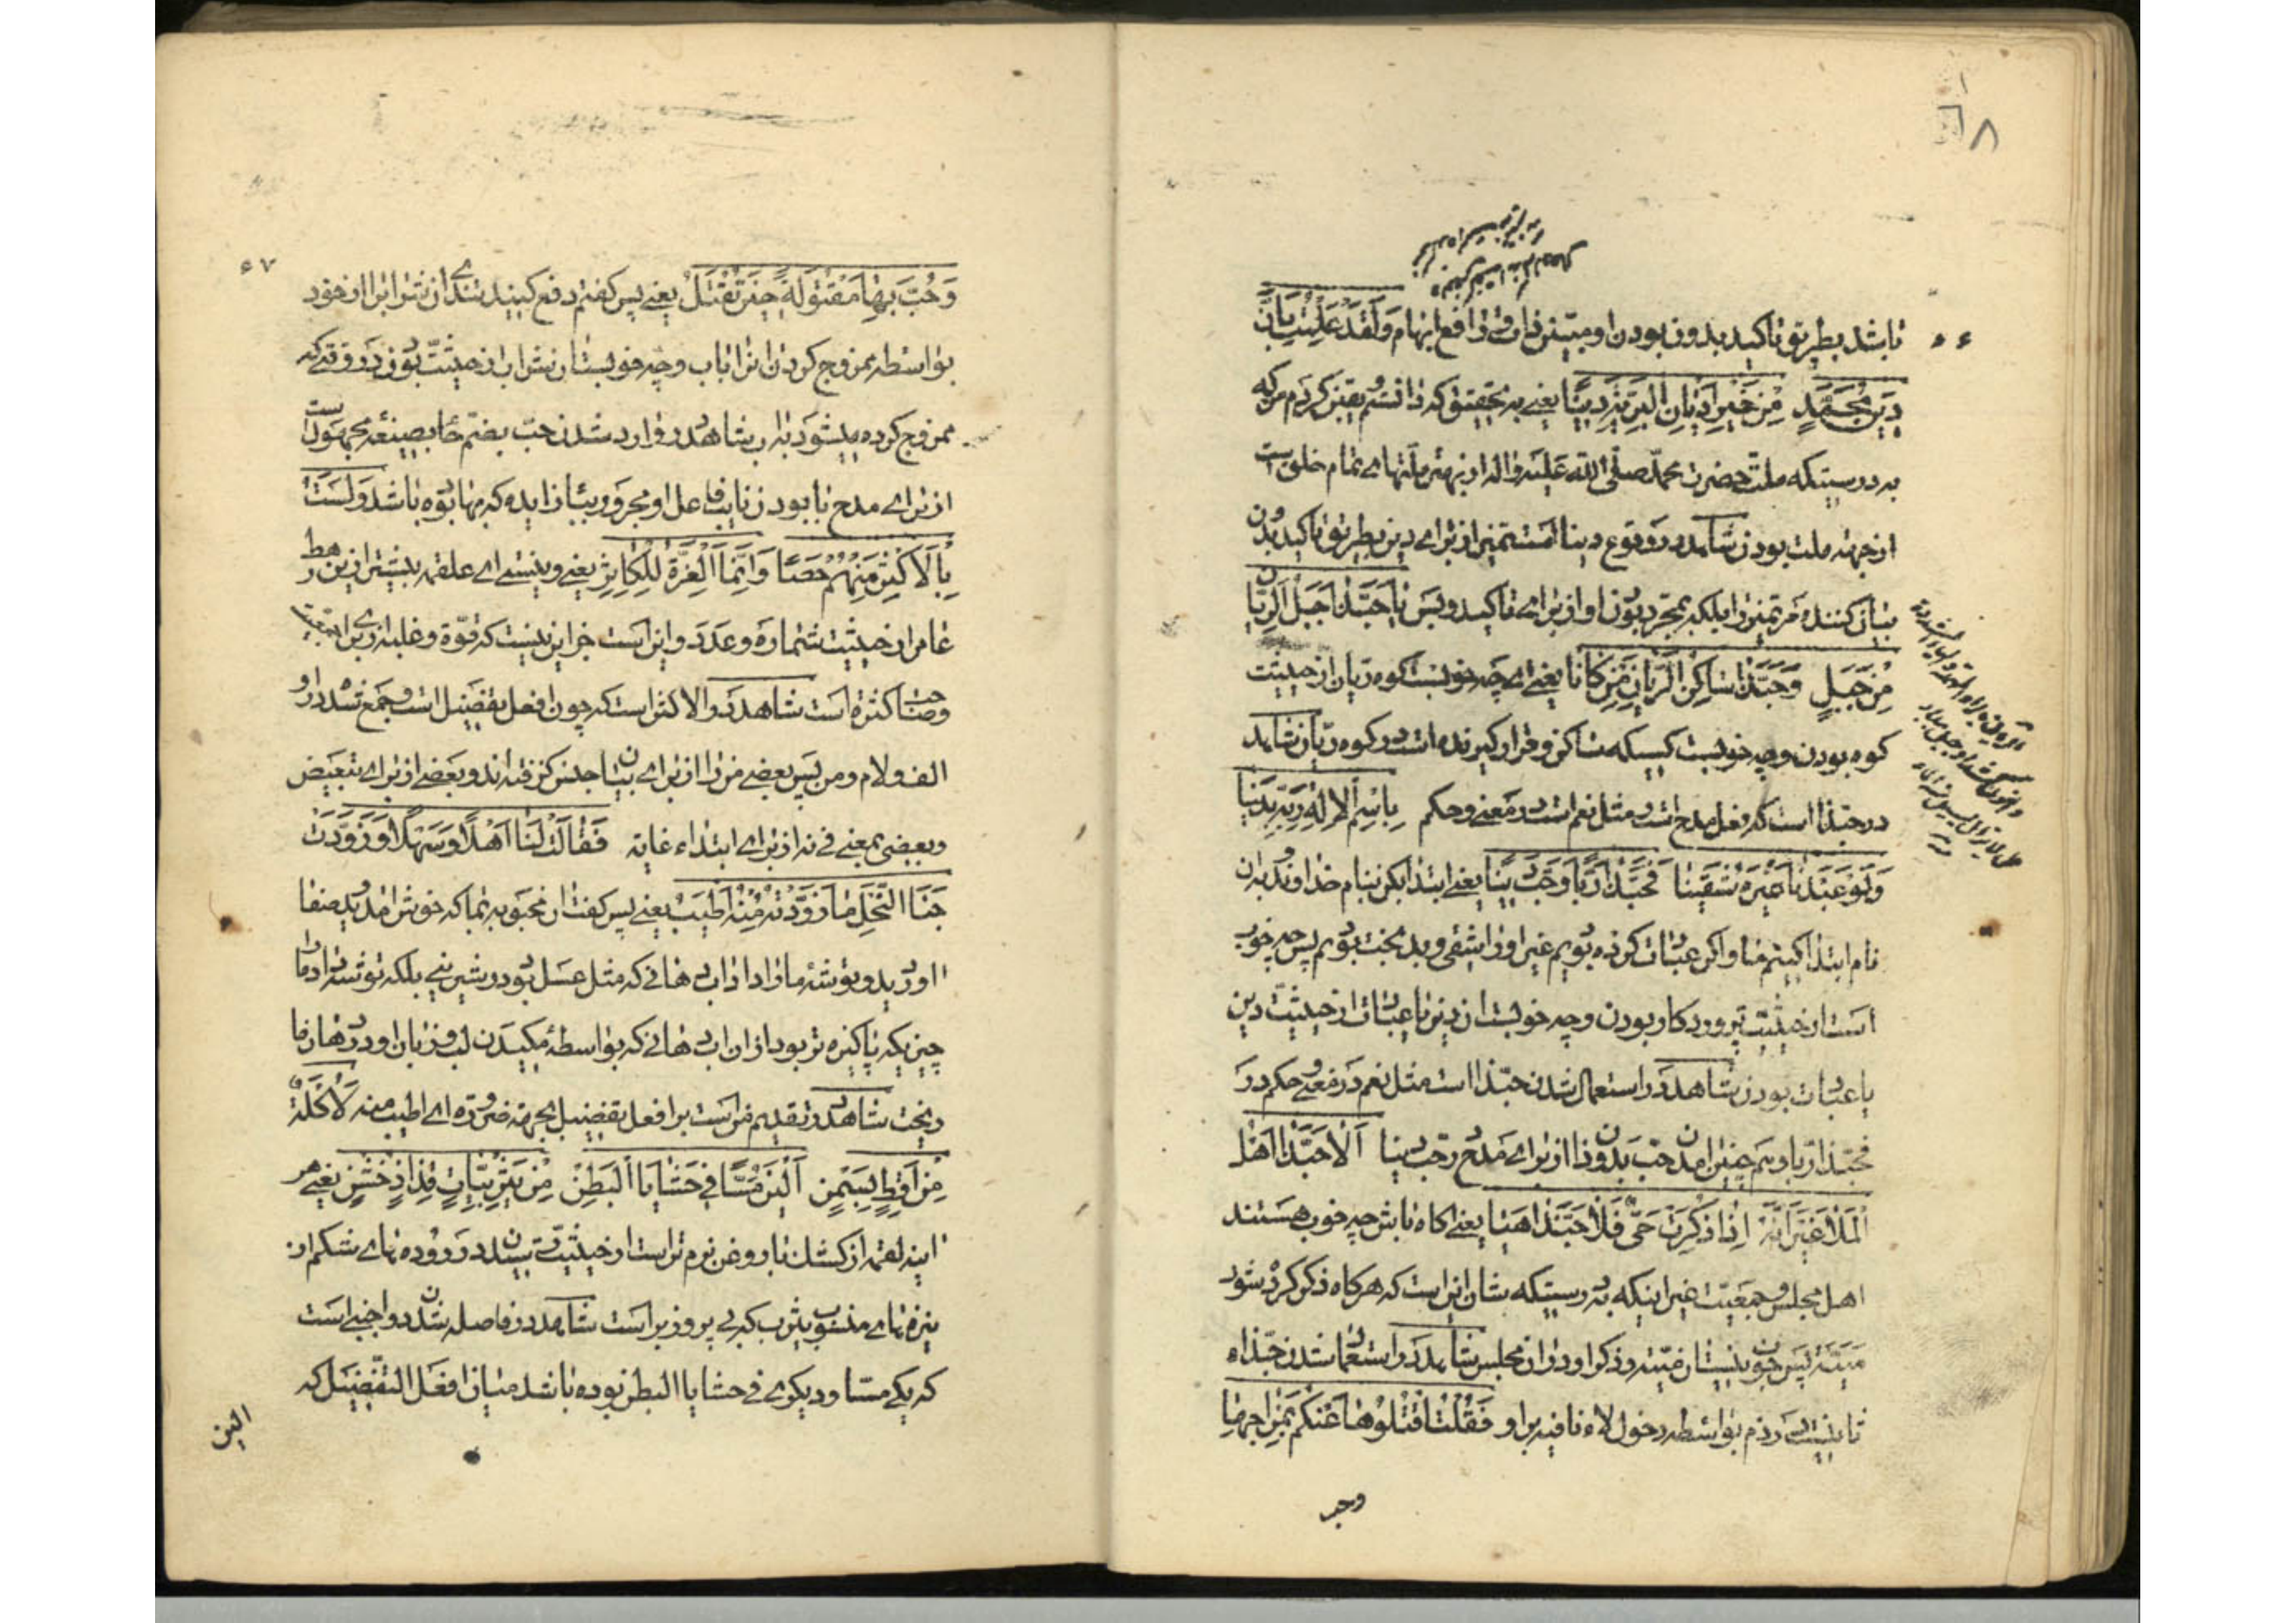 باشد بطریق تاکید بدون بودن او مبین ذات و رافع ابهام وَلَقَدْ عَلِمْتُ بِاَنَّ
دِینَ مُحَمَّدٍ مِنْ خَیْرِ اَدْیَانِ الْبَرِیَّةِ دِینًا یعنی به تحقیق که دانستم و یقین کردم مرکه
به درستیکه ملت حضرت محمد صلی الله علیه واله از بهتر ملتهای تمام خلق است
از جهة ملت بودن شاهد در وقوع دینا است تمیز از برای دین بطریق تاکید بدون
بیان کننده مر تمیز را بلکه بمجرد بودن او از برای تاکید و بس یَا حَبَّذَا جَبَلُ الرَّیَّا
نِ مِنْ جَبَلٍ وَحَبَّذَا سَاکِنُ الرَّیَّانِ مَنْ کَانَا یعنی ای چه خوبست کوه ریان از حیثیت
کوه بودن و چه خوبست کسیکه ساکن و قرار کیرنده است در کوه ریان شاهد
در حبذا است که فعل مدح است و مثل نعم است در معنی و حکم بِاسْمِ الْاِلٰهِ رَبِّهِ بَدِینَا
وَلَوْ عَبَدْنَا غَیْرَهُ شَقِینَا فَحَبَّذَا رَبًّا وَحَبَّ دِینًا یعنی ابتدا بکن بنام خداوند و بدان
نام ابتدا کنیم ما و اکر عبادت کرده بودیم غیر او را شقی و بدبخت بودیم پس چه خوب
است از حیثیت پروردکار بودن و چه خوبست ان دین با عبادت از حیثیت دین
یا عبادت بودن شاهد در استعمال شدن حبذا است مثل نعم در معنی و حکم در
فحبذا ربا و هم چنین امدن حب بدون ذا از برای مدح در حب دینا اَلَا حَبَّذَا اَهْلُ
الْمَلَا غَیْرَ اَنَّهُ اِذَا ذُکِرَتْ مَیٌّ فَلَا حَبَّذَا هِیَا یعنی اکاه باش چه خوب هستند
اهل مجلس و جمعیت غیر اینکه به درستیکه شان این است که هر کاه ذکر کرده شود
میة پس خوب نیستان میته و ذکر او در ان مجلس شاهد در استعمال شدن حبذاه
ثانیست در ذم بواسطه دخول لاء نافیه بر او فَقُلْتُ اقْتُلُوهَا عَنْکُمْ بِمِزَاجِهَا
وحب
وَحُبَّ بِهَا مَقْتُولَةً حِینَ تُقْتَلُ یعنی پس کفتم دفع کنید تندی ان شراب را از خود
بواسطه ممزوج کردن ان را باب و چه خوبست ان شراب از حیثیت بودن در وقتیکه
ممزوج کرده میشود به اب شاهد در وارد شدن حب بضم حا بصیغه مجهول است
از برای مدح با بودن نایب فاعل او مجرور بباء زایده که بها بوده باشد وَلَسْتَ
بِالْاَکْثَرِ مِنْهُمْ حَصًی وَاِنَّمَا الْعِزَّةُ لِلْکَاثِرِ یعنی و نیستی ای علقمه بیشتر از این رهط
عامر از حیثیت شماره و عدد و این است جز این نیست که قوة و غلبه از برای جمعیت
و صاحب کثرة است شاهد در الاکثر است که چون افعل تفضیل است و جمع شد در او
الف و لام و من پس بعضی من را از برای بیان جنس کرفته اند و بعضی از برای تبعیض
و بعضی بمعنی فی نه از برای ابتداء غایة فَقَالَتْ لَنَا اَهْلًا وَسَهْلًا وَزَوَّدَتْ
جَنَا النَّحْلِ مَا زَوَّدَتْهُ مِنْهُ اَطْیَبُ یعنی پس کفت ان محبوبه بما که خوش امدید و صفا
اوردید و توشه ما را داد اب دهانی که مثل عسل بود در شیرینی بلکه توشه داد ما را
چیزیکه پاکیزه تر بود از ان اب دهانی که بواسطه مکیدن لب و زبان او در دهان ما
ریخت شاهد در تقدیم من است بر افعل تفضیل بجهة ضرورة ای اطیب منه لَاُکْلَةٌ
مِنْ اَقِطٍ بِسَمْنٍ اَلْیَنُ مَسًّا فِی حَشَایَا الْبَطْنِ مِنْ یَثْرِبِیَّاتٍ قِذَاذٍ خُشْنٍ یعنی هر
اینه لقمه از کشک با روغن نرم تر است از حیثیت مس در روده های شکم از
نیزه های منسوب بیثرب که بی پر و زبر است شاهد در فاصله شدن دو اجنبی است
که یکی مسا و دیکری فی حشایا البطن بوده باشد میان افعل التفضیل که
الین